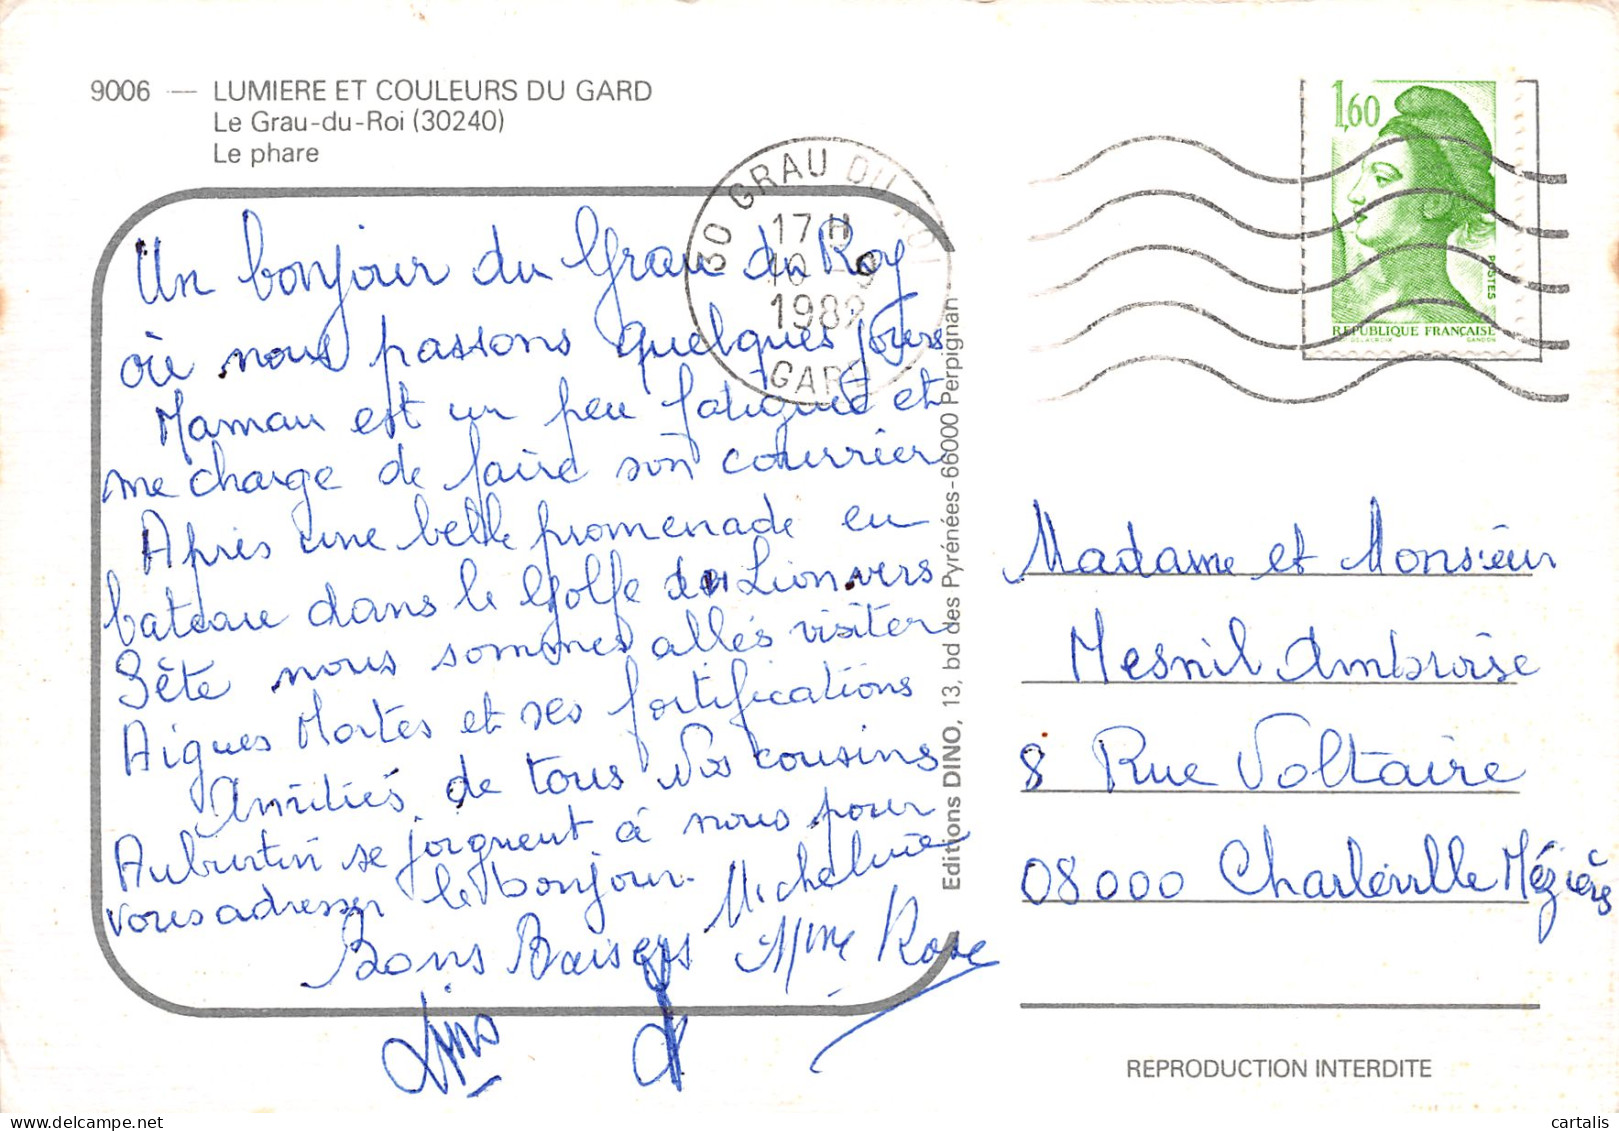 9006 — LUMIERE ET COULEURS DU GARD
Le Grau-du-Roi (30240)
Le phare
30 GRAU DU ROI
17 H
10 9
1982
GARD
1,60
POSTES
REPUBLIQUE FRANÇAISE
DELACROIX GANDON
Un bonjour du Grau du Roy
où nous passons quelques jours
Maman est un peu fatiguée et
me charge de faire son courrier
Après une belle promenade en
bateau dans le Golfe du Lion vers
Sète nous sommes allés visiter
Aigues Mortes et ses fortifications
Amitiés de tous Vos cousins
Auburtin se joignent à nous pour
vous adresser le bonjour.
Bons Baisers Micheline Mme Rose
Editions DINO, 13, bd des Pyrénées-66000 Perpignan
Madame et Monsieur
Mesnil Ambroise
8 Rue Voltaire
08000 Charleville Mézières
REPRODUCTION INTERDITE
cartalis